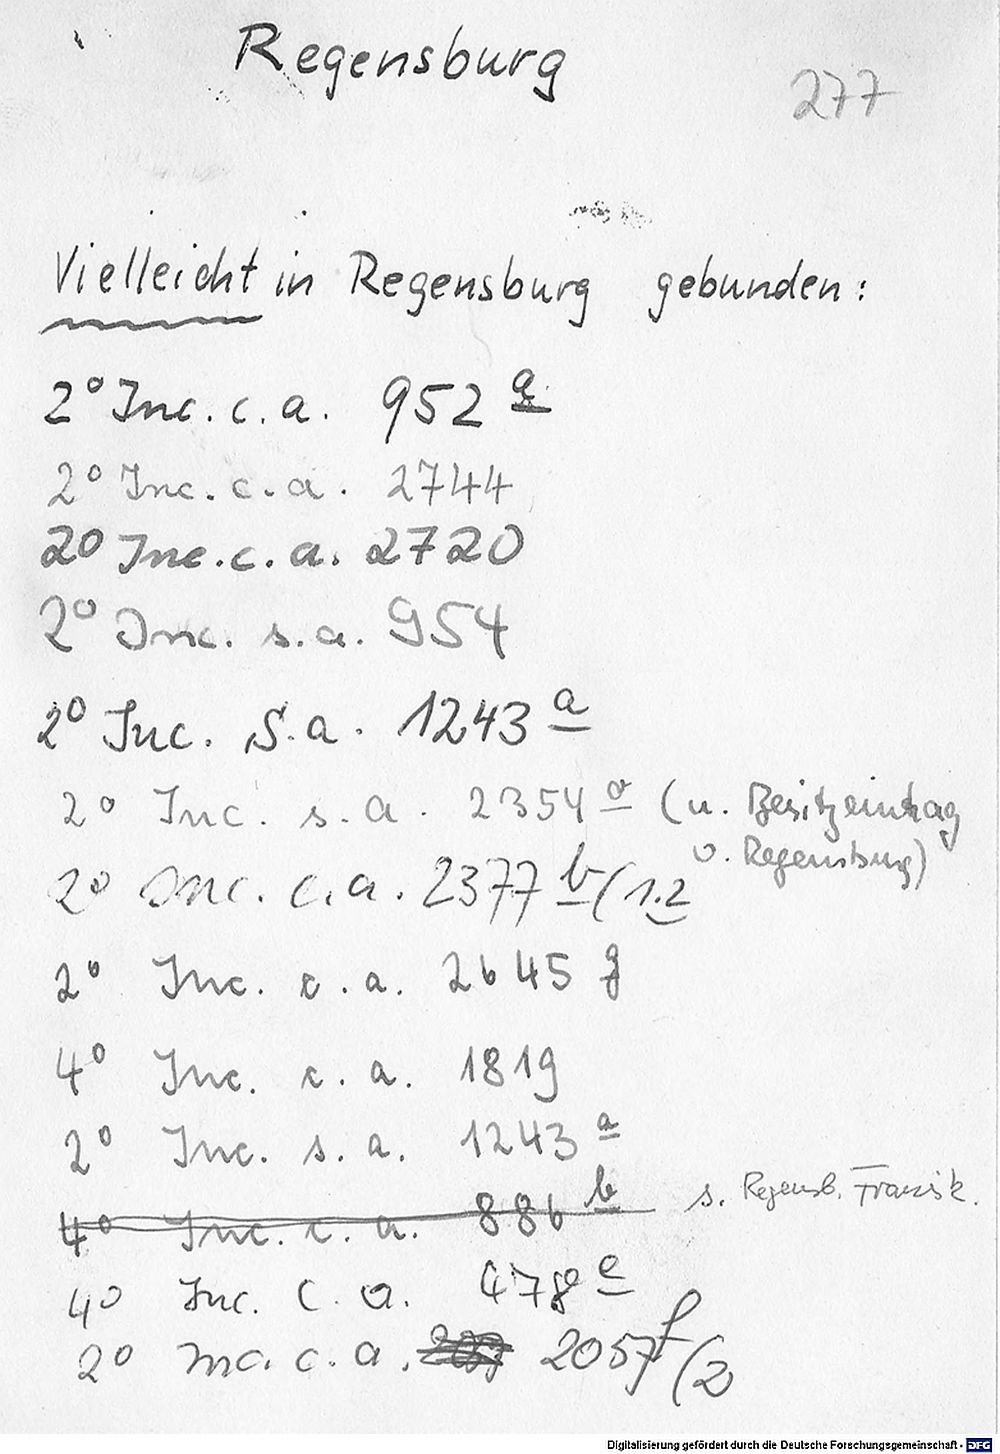 Regensburg
277
Vielleicht in Regensburg gebunden:
2° Inc. c. a. 952 a
2° Inc. c. a. 2744
2° Inc. c. a. 2720
2° Inc. s. a. 954
2° Inc. s. a. 1243 a
2° Inc. s. a. 2354 a (u. Besitzeintrag
v. Regensburg)
2° Inc. c. a. 2377 b (1.2
2° Inc. c. a. 2645 g
4° Inc. c. a. 1819
2° Inc. s. a. 1243 a
4° Inc. c. a. 886 b s. Regensb. Franzisk.
4° Inc. c. a. 478 e
2° Inc. c. a. 2057 f (2
Digitalisierung gefördert durch die Deutsche Forschungsgemeinschaft - DFG